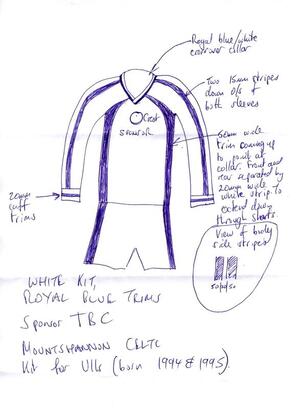 Royal blue/white
crossover collar
Two 15mm stripes
down o/s of
both sleeves
Crest
SPONSOR
60mm wide
trim coming up
to point at
collar. Front and
rear separated by
20mm wide
white strip to
extend down
through shorts.
20mm
cuff
trims
View of body
side stripes
50/20/50
WHITE KIT,
ROYAL BLUE TRIMS
Sponsor TBC
MOUNTSHANNON CELTIC
Kit for U16 (born 1994 & 1995).